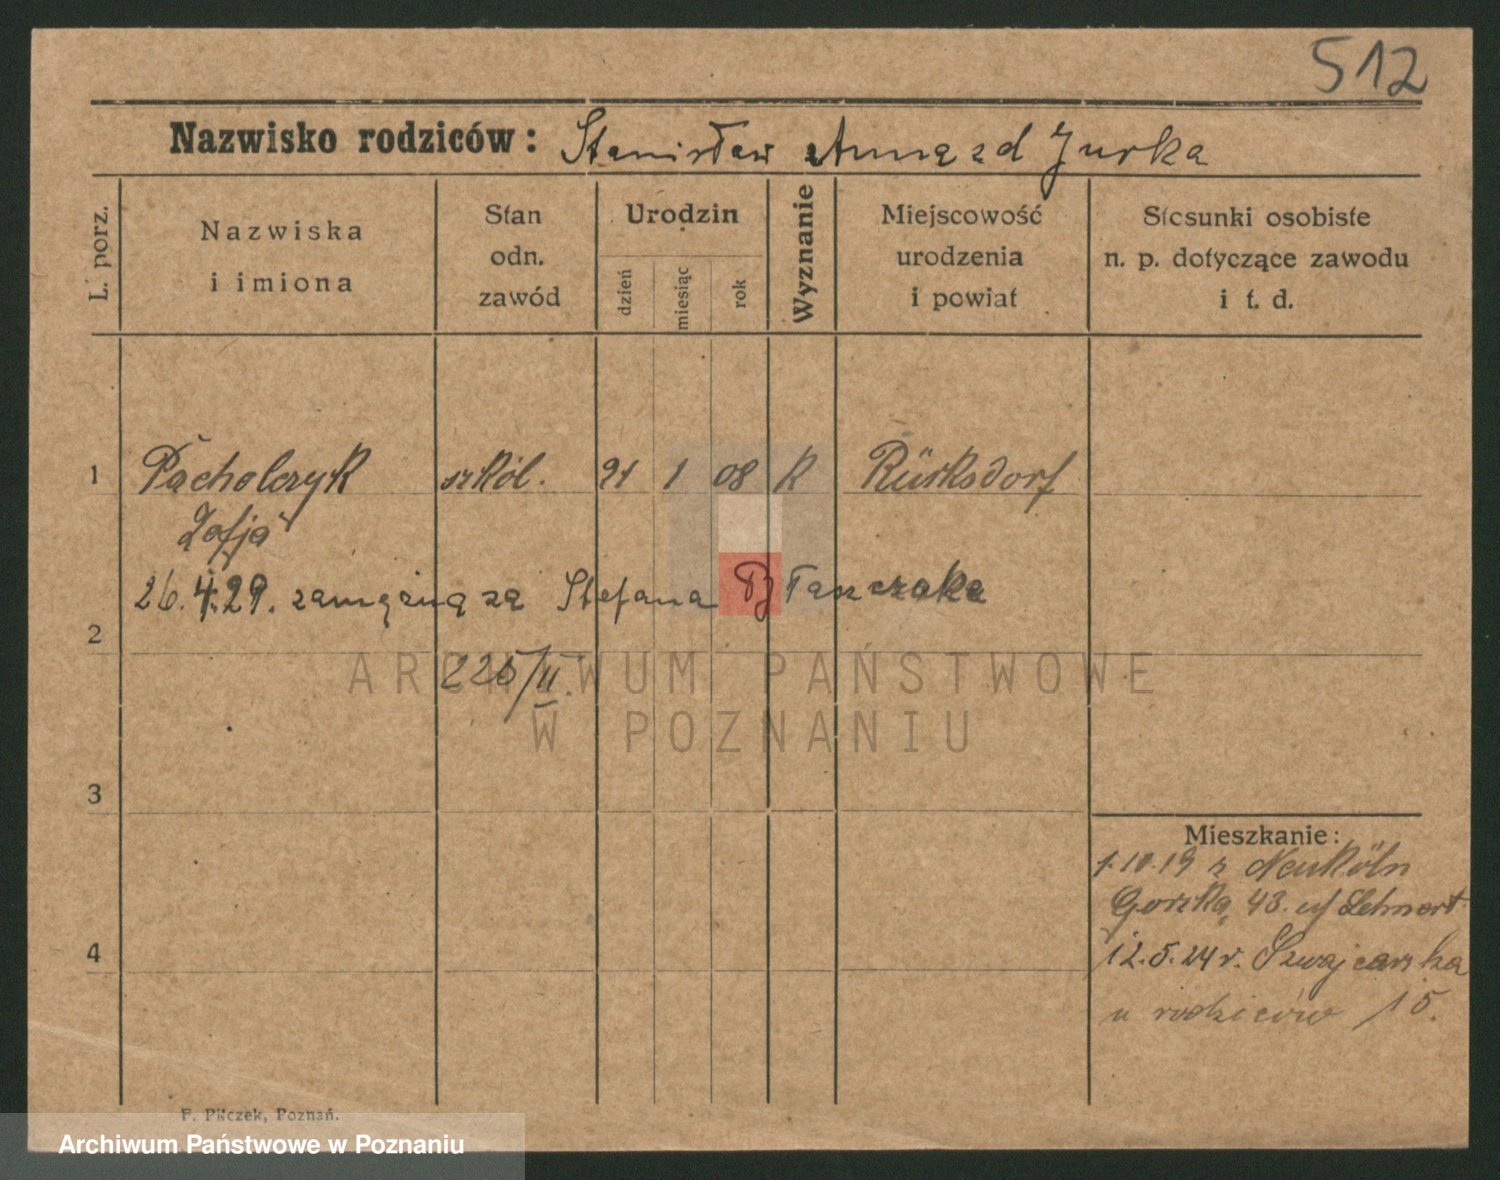 512
Nazwisko rodziców: Stanisław Anna zd Jurka
L. porz.
Nazwiska i imiona
Stan odn. zawód
Urodzin
dzień
miesiąc
rok
Wyznanie
Miejscowość urodzenia i powiat
Stosunki osobiste n. p. dotyczące zawodu i t. d.
1 Pacholczyk szkol. 21 1 08 k Rüsksdorf
Zofja
26.4.29. zamężną za Stefana Błaszczaka
2
225/II.
ARCHIWUM PAŃSTWOWE
W POZNANIU
3
Mieszkanie:
1.10.19 z Neuköln
Gorzka, 43. Lehnert
4
12.5.24 r. Szwajcarska
u rodziców 15.
F. Pilczek, Poznań.
Archiwum Państwowe w Poznaniu